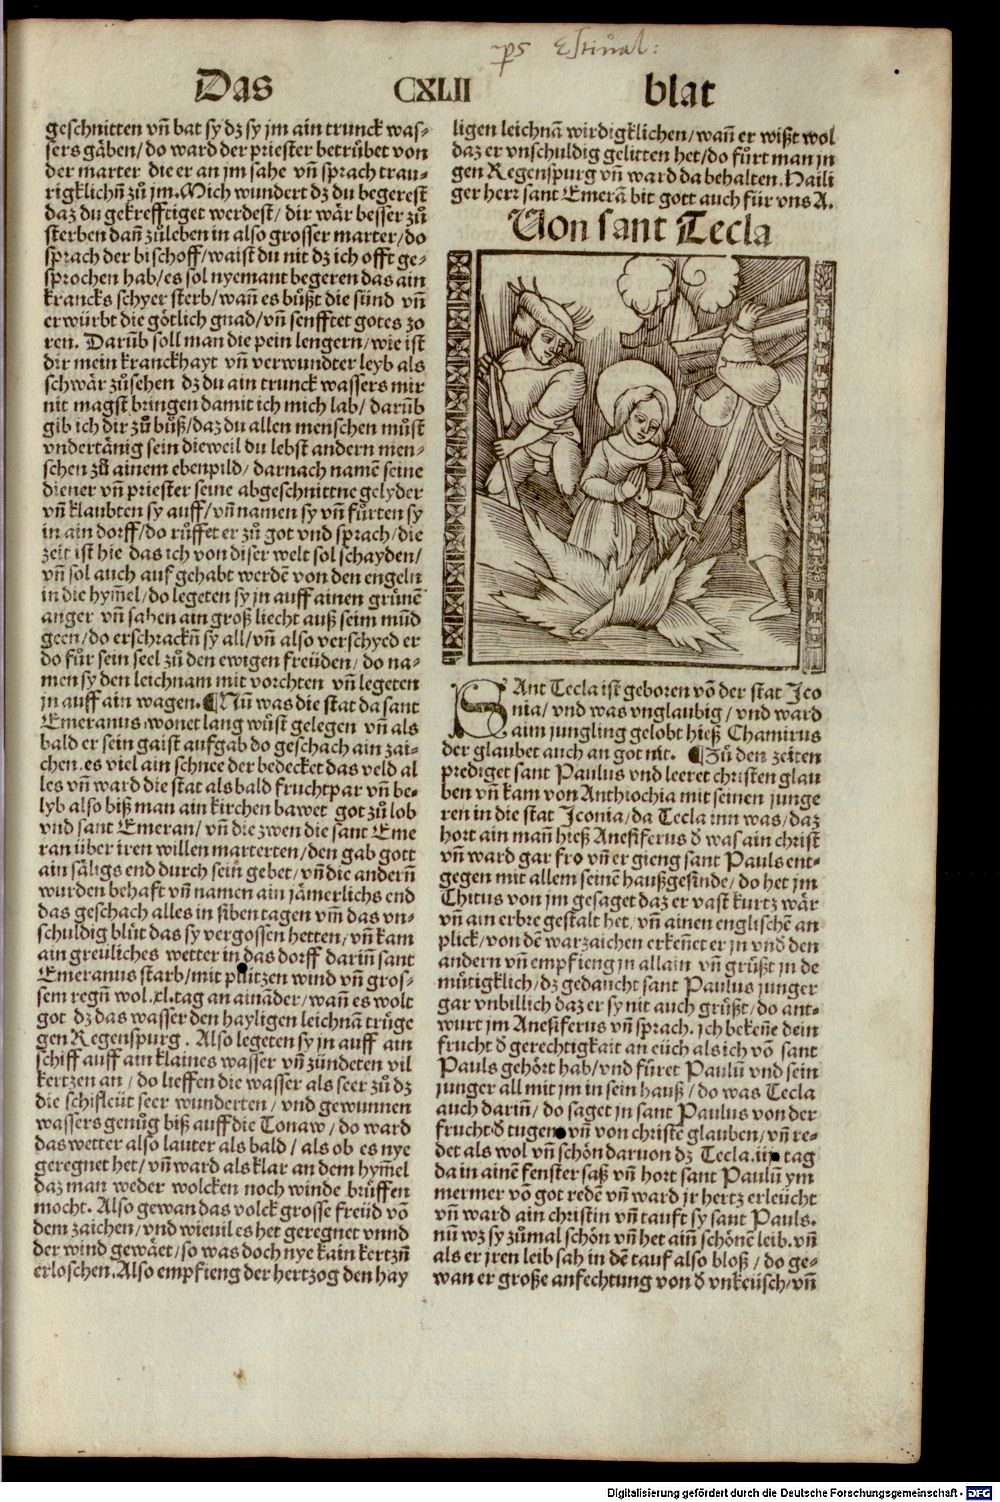 ps Estiual:
Das CXLII blat
geschnitten vn̄ bat sy dz sy jm ain trunck was⸗
sers gåben/ do ward der priester betrůbet von
der marter die er an jm sahe vn̄ sprach trau⸗
rigklichn̄ zů jm. Mich wundert dz du begerest
daz du gekrefftiget werdest/ dir wår besser zů
sterben dan̄ zůleben in also grosser marter/ do
sprach der bischoff/ waist du nit dz ich offt ge⸗
sprochen hab/ es sol nyemant begeren das ain
krancks schyer sterb/ wan̄ es bůßt die sünd vn̄
erwürbt die götlich gnad/ vn̄ senfftet gotes zo
ren. Darūb soll man die pein lengern/ wie ist
dir mein kranckhayt vn̄ verwundter leyb als
schwår zůsehen dz du ain trunck wassers mir
nit magst bringen damit ich mich lab/ darūb
gib ich dir zů bůß/ daz du allen menschen můst
vndertånig sein dieweil du lebst andern men⸗
schen zů ainem ebenpild/ darnach namē seine
diener vn̄ priester seine abgeschnittne gelyder
vn̄ klaubten sy auff/ vn̄ namen sy vn̄ fůrten sy
in ain dorff/ do růffet er zů got vnd sprach/ die
zeit ist hie das ich von diser welt sol schayden/
vn̄ sol auch auf gehabt werdē von den engeln
in die hym̄el/ do legeten sy jn auff ainen grůnē
anger vn̄ sahen ain groß liecht auß seim mūd
geen/ do erschrackn̄ sy all/ vn̄ also verschyed er
do fůr sein seel zů den ewigen freüden/ do na⸗
men sy den leichnam mit vorchten vn̄ legeten
jn auff ain wagen. ¶Nun̄ was die stat da sant
Emeranus wonet lang wůst gelegen vn̄ als
bald er sein gaist aufgab do geschach ain zai⸗
chen. es viel ain schnee der bedecket das veld al
les vn̄ ward die stat als bald fruchtpar vn̄ be⸗
lyb also biß man ain kirchen bawet got zů lob
vnd sant Emeran/ vn̄ die zwen die sant Eme
ran über iren willen marterten/ den gab gott
ain såligs end durch sein gebet/ vn̄ die andern̄
wurden behaft vn̄ namen ain jåmerlichs end
das geschach alles in siben tagen vm̄ das vn⸗
schuldig blůt das sy vergossen hetten/ vn̄ kam
ain greuliches wetter in das dorff darin̄ sant
Emeranus starb/ mit plützen wind vn̄ gros⸗
sem regn̄ wol .xl. tag an aināder/ wan̄ es wolt
got dz das wasser den hayligen leichnā trüge
gen Regenspurg. Also legeten sy jn auff ain
schiff auff ain klaines wasser vn̄ zündeten vil
kertzen an/ do lieffen die wasser als seer zů dz
die schifleüt seer wunderten/ vnd gewunnen
wassers genůg biß auff die Tonaw/ do ward
das wetter also lauter als bald/ als ob es nye
geregnet het/ vn̄ ward als klar an dem hym̄el
daz man weder wolcken noch winde brüffen
mocht. Also gewan das volck grosse freüd vō
dem zaichen/ vnd wieuil es het geregnet vnnd
der wind gewået/ so was doch nye kain kertzn̄
erloschen. Also empfieng der hertzog den hay
ligen leichnā wirdigklichen/ wan̄ er wißt wol
daz er vnschuldig gelitten het/ do fůrt man jn
gen Regenspurg vn̄ ward da behalten. Haili
ger herr sant Emerā bit gott auch für vns A.
Von sant Tecla
SAnt Tecla ist geboren vō der stat Ico
nia/ vnd was vnglaubig/ vnd ward
aim jungling gelobt hieß Chamirus
der glaubet auch an got nit. ¶Zů den zeiten
prediget sant Paulus vnd leeret christen glau
ben vn̄ kam von Anthiochia mit seinen junge
ren in die stat Iconia/ da Tecla inn was/ daz
hort ain man̄ hieß Anesiferus d̄ was ain christ
vn̄ ward gar fro vn̄ er gieng sant Pauls ent⸗
gegen mit allem seinē haußgesinde/ do het jm
Thitus von jm gesaget daz er vast kurtz wår
vn̄ ain erbre gestalt het/ vn̄ ainen englischē an
plick/ von dē warzaichen erken̄et er jn vnd̄ den
andern vn̄ empfieng jn allain vn̄ grůßt in de
můtigklich/ dz gedaucht sant Paulus junger
gar vnbillich daz er sy nit auch grůßt/ do ant⸗
wurt jm Anesiferus vn̄ sprach. ich beken̄e dein
frucht d̄ gerechtigkait an eüch als ich vō sant
Pauls gehört hab/ vnd fůret Paulū vnd sein
junger all mit jm in sein hauß/ do was Tecla
auch darin̄/ do saget jn sant Paulus von der
frucht d̄ tugend vn̄ von christē glauben/ vn̄ re⸗
det als wol vn̄ schön daruon dz Tecla .iij. tag
da in ainē fenster saß vn̄ hort sant Paulū ym
mermer vō got redē vn̄ ward jr hertz erleücht
vn̄ ward ain christin vn̄ tauft sy sant Pauls.
nūn wz sy zůmal schön vn̄ het ain̄ schönē leib. vn̄
als er jren leib sah in dē tauf also bloß/ do ge⸗
wan er große anfechtung von d̄ vnkeüsch/ vn̄
Digitalisierung gefördert durch die Deutsche Forschungsgemeinschaft - DFG